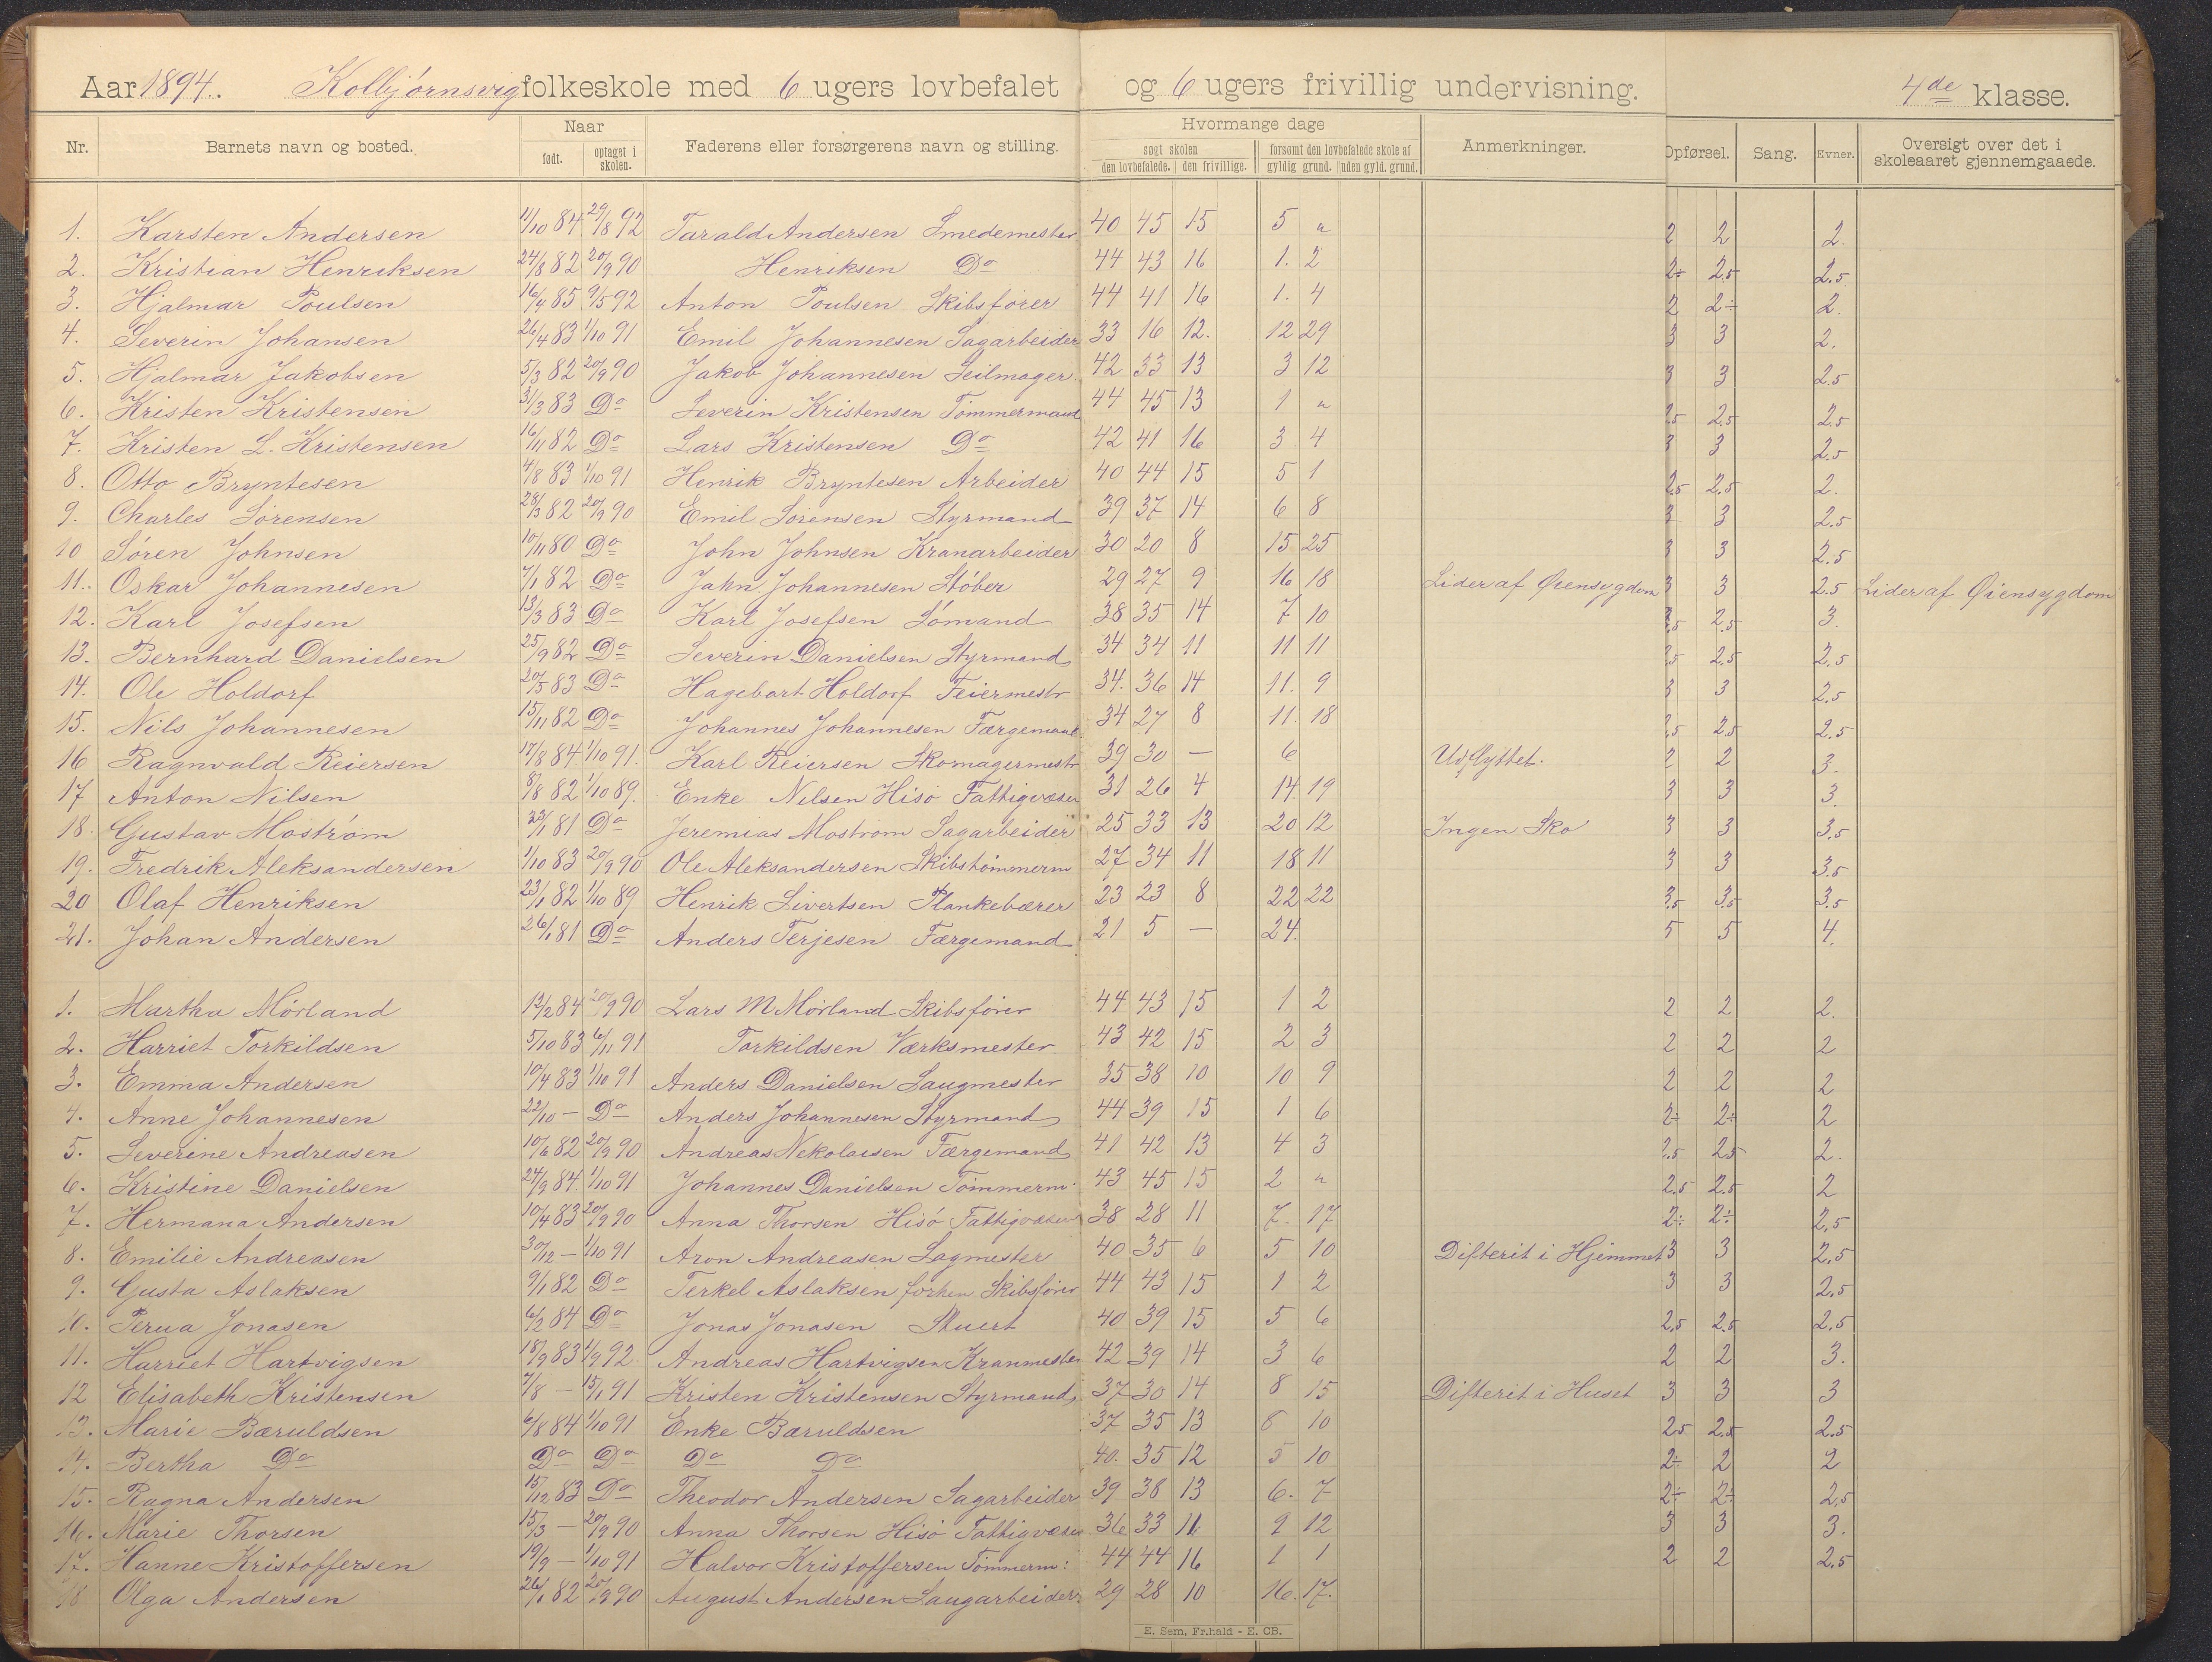 Aar 1894. Kolbjørnsvig folkeskole med 6 ugers lovbefalet og 6 ugers frivillig undervisning. 4de klasse.
Nr. Barnets navn og bosted. Naar født. optaget i skolen. Faderens eller forsørgerens navn og stilling. Hvormange dage søgt skolen den lovbefalede. den frivillige. forsømt den lovbefalede skole af gyldig grund. uden gyld. grund. Anmerkninger. Opførsel. Sang. Evner. Oversigt over det i skoleaaret gjennemgaaede.
1. Karsten Andersen 11/10 84 29/8 92 Tarald Andersen Smedemester 40 45 15 5 " 2 2 2.
2. Kristian Henriksen 24/8 82 20/9 90 Henriksen Do 44 43 16 1. 2 2÷ 2.5 2.5
3. Hjalmar Poulsen 16/4 85 9/5 92 Anton Poulsen Skibsfører 44 41 16 1. 4 2 2÷ 2.
4. Severin Johansen 26/4 83 1/10 91 Emil Johannesen Sagarbeider 33 16 12. 12 29 3 3 2.
5. Hjalmar Jakobsen 5/3 82 20/9 90 Jakob Johannesen Seilmager 42 33 13 3 12 3 3 2.5
6. Kristen Kristensen 31/3 83 Do Severin Kristensen Tømmermand 44 45 13 1 " 2.5 2.5 2.5
7. Kristen L. Kristensen 16/11 82 Do Lars Kristensen Do 42 41 16 3 4 3 3 2.5
8. Otto Bryntesen 4/8 83 1/10 91 Henrik Bryntesen Arbeider 40 44 15 5 1 2.5 2.5 2.
9. Charles Sørensen 28/3 82 20/9 90 Emil Sørensen Styrmand 39 37 14 6 8 3 3 2.5
10 Søren Johnsen 10/11 80 Do John Johnsen Kranarbeider 30 20 8 15 25 3 3 2.5
11. Oskar Johannesen 7/1 82 Do Jahn Johannesen Støber 29 27 9 16 18 Lider af Øiensygdom 3 3 2.5 Lider af Øiensygdom
12. Karl Josefsen 13/3 83 Do Karl Josefsen Sømand 38 35 14 7 10 2.5 2.5 3.
13. Bernhard Danielsen 25/9 82 Do Severin Danielsen Styrmand 34 34 11 11 11 2.5 2.5 2.5
14. Ole Holdorf 20/5 83 Do Hagebart Holdorf Feiermestr 34. 36 14 11. 9 3 3 2.5
15. Nils Johannesen 15/11 82 Do Johannes Johannesen Færgemand 34 27 8 11. 18 2.5 2.5 2.5
16 Ragnvald Reiersen 17/8 84. 1/10 91. Karl Reiersen Skomagermestr 39 30 — 6 Udflyttet. 2 2 3.
17 Anton Nilsen 8/8 82 1/10 89. Enke Nilsen Hisø Fattigvæsen 31 26 4 14. 19 3 3 3.
18. Gustav Mostrøm 23/1 81 Do Jeremias Mostrøm Sagarbeider 25 33 13 20 12 Ingen Sko 3 3 3.5
19. Fredrik Aleksandersen 1/10 83 20/9 90 Ole Aleksandersen Skibstømmerm 27 34 11 18 11 3 3 3.5
20 Olaf Henriksen 23/1 82 1/10 89 Henrik Sivertsen Plankebærer 23 23 8 22 22 3.5 3.5 3.5
21. Johan Andersen 26/1 81 Do Anders Terjesen Færgemand 21 5 — 24. 5 5 4.
1. Martha Mørland 12/2 84 20/9 90 Lars M Mørland Skibsfører 44 43 15 1 2 2 2 2.
2. Harriet Torkildsen 5/10 83 6/11 91 Torkildsen Værksmester 43 42 15 2 3 2 2 2
3. Emma Andersen 10/4 83 1/10 91 Anders Danielsen Saugmester 35 38 10 10 9 2 2 2
4. Anne Johannesen 22/10 — Do Anders Johannesen Styrmand 44 39 15 1 6 2÷ 2÷ 2
5. Severine Andreasen 10/6 82 20/9 90 Andreas Nekolaisen Færgemand 41 42 13 4 3 2.5 2.5 2.
6. Kristine Danielsen 24/9 84. 1/10 91 Johannes Danielsen Tømmerm. 43 45 15 2 " 2.5 2.5 2
7. Hermana Andersen 10/4 83 20/9 90 Anna Thorsen Hisø Fattigvæsen 38 28 11 7. 17 2÷ 2÷ 2.5
8. Emilie Andreasen 30/12 — 1/10 91 Aron Andreasen Sagmester 40 35 6 5 10 Difterit i Hjemmet 3 3 2.5
9. Gusta Aslaksen 9/1 82 Do Terkel Aslaksen forhen Skibsfører 44 43 15 1 2 3 3 2.5
10. Perua Jonasen 6/2 84 Do Jonas Jonasen Stuert 40 39 15 5 6 2.5 2.5 2.5
11. Harriet Hartvigsen 18/9 83 1/9 92. Andreas Hartvigsen Kranmester 42 39 14 3 6 2 2 3.
12 Elisabeth Kristensen 7/8 — 15/1 91 Kristen Kristensen Styrmand 37 30 14 8 15 Difterit i Huset 3 3 3
13. Marie Bæruldsen 6/8 84 1/10 91 Enke Bæruldsen 37 35 13 8 10 2.5 2.5 2.5
14. Bertha Do Do Do Do Do 40. 35 12 5 10 2÷ 2 2
15. Ragna Andersen 15/12 83 Do Theodor Andersen Sagarbeider 39 38 13 6. 7 2÷ 2÷ 2.5
16. Marie Thorsen 15/3 — 20/9 90 Anna Thorsen Hisø Fattigvæsen 36 33 11 9 12 3 3 3.
17. Hanne Kristoffersen 19/9 — 1/10 91 Halvor Kristoffersen Tømmerm: 44 44 16 1 1 2 2 2.5
18 Olga Andersen 26/1 82 20/9 90 August Andersen Saugarbeider 29 28 10 16. 17.
E. Sem, Fr.hald - E. CB.